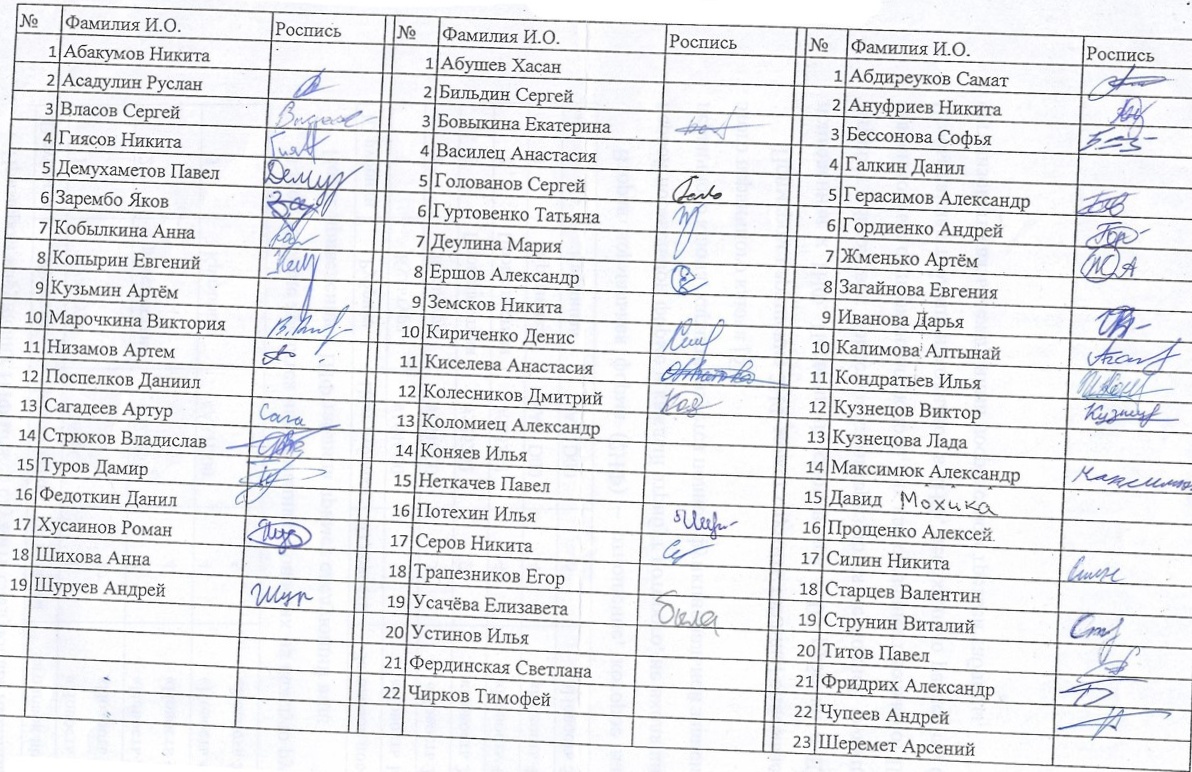 № Фамилия И.О. Роспись
1 Абакумов Никита
2 Асадулин Руслан
3 Власов Сергей
4 Гиясов Никита
5 Демухаметов Павел Демур
6 Зарембо Яков
7 Кобылкина Анна
8 Копырин Евгений
9 Кузьмин Артём
10 Марочкина Виктория
11 Низамов Артем
12 Поспелков Даниил
13 Сагадеев Артур Сага
14 Стрюков Владислав
15 Туров Дамир
16 Федоткин Данил
17 Хусаинов Роман
18 Шихова Анна
19 Шуруев Андрей Шур
№ Фамилия И.О. Роспись
1 Абушев Хасан
2 Бильдин Сергей
3 Бовыкина Екатерина
4 Василец Анастасия
5 Голованов Сергей
6 Гуртовенко Татьяна
7 Деулина Мария
8 Ершов Александр
9 Земсков Никита
10 Кириченко Денис
11 Киселева Анастасия
12 Колесников Дмитрий
13 Коломиец Александр
14 Коняев Илья
15 Неткачев Павел
16 Потехин Илья
17 Серов Никита
18 Трапезников Егор
19 Усачёва Елизавета была
20 Устинов Илья
21 Фердинская Светлана
22 Чирков Тимофей
№ Фамилия И.О. Роспись
1 Абдиреуков Самат
2 Ануфриев Никита
3 Бессонова Софья
4 Галкин Данил
5 Герасимов Александр
6 Гордиенко Андрей Гор
7 Жменько Артём
8 Загайнова Евгения
9 Иванова Дарья
10 Калимова Алтынай
11 Кондратьев Илья
12 Кузнецов Виктор Кузнецов
13 Кузнецова Лада
14 Максимюк Александр
15 Давид Мохика
16 Прощенко Алексей.
17 Силин Никита
18 Старцев Валентин
19 Струнин Виталий
20 Титов Павел
21 Фридрих Александр
22 Чупеев Андрей
23 Шеремет Арсений